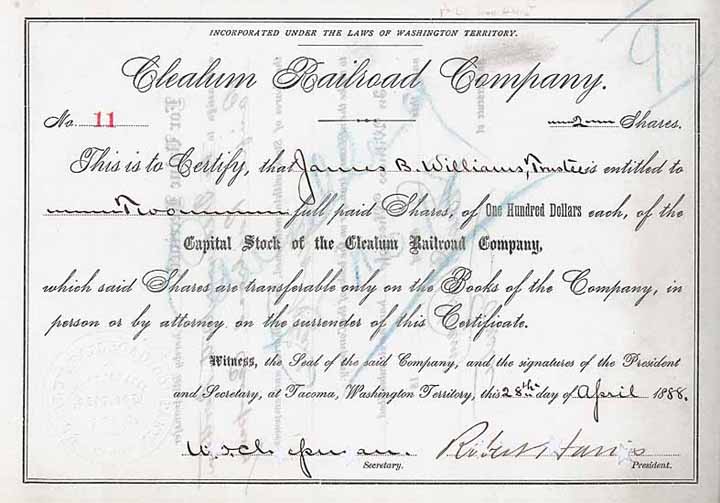 INCORPORATED UNDER THE LAWS OF WASHINGTON TERRITORY.
Clealum Railroad Company.
No. 11 2 Shares.
This is to Certify, that James B. Williams, Trustee is entitled to
Two full paid Shares, of One Hundred Dollars each, of the
Capital Stock of the Clealum Railroad Company,
which said Shares are transferable only on the Books of the Company, in
person or by attorney on the surrender of this Certificate.
Witness, the Seal of the said Company, and the signatures of the President
and Secretary, at Tacoma, Washington Territory, this 28th day of April 1888.
Robert Harris
Secretary. President.